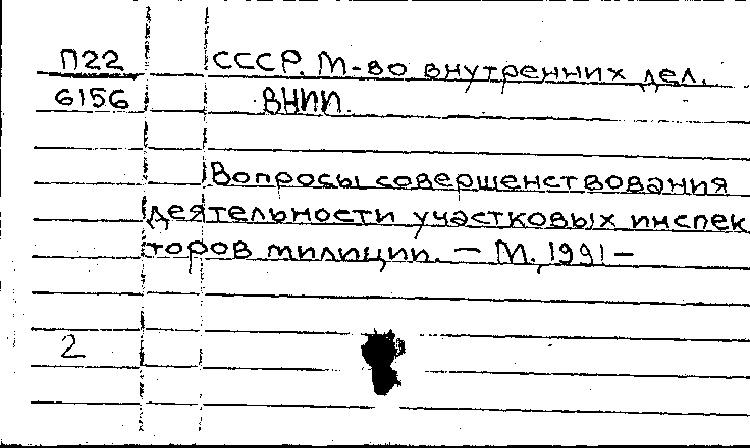 П22 СССР. М-во внутренних дел.
6156 ВНИИ.
Вопросы совершенствования
деятельности участковых инспек
торов милиции. — М., 1991 —
2